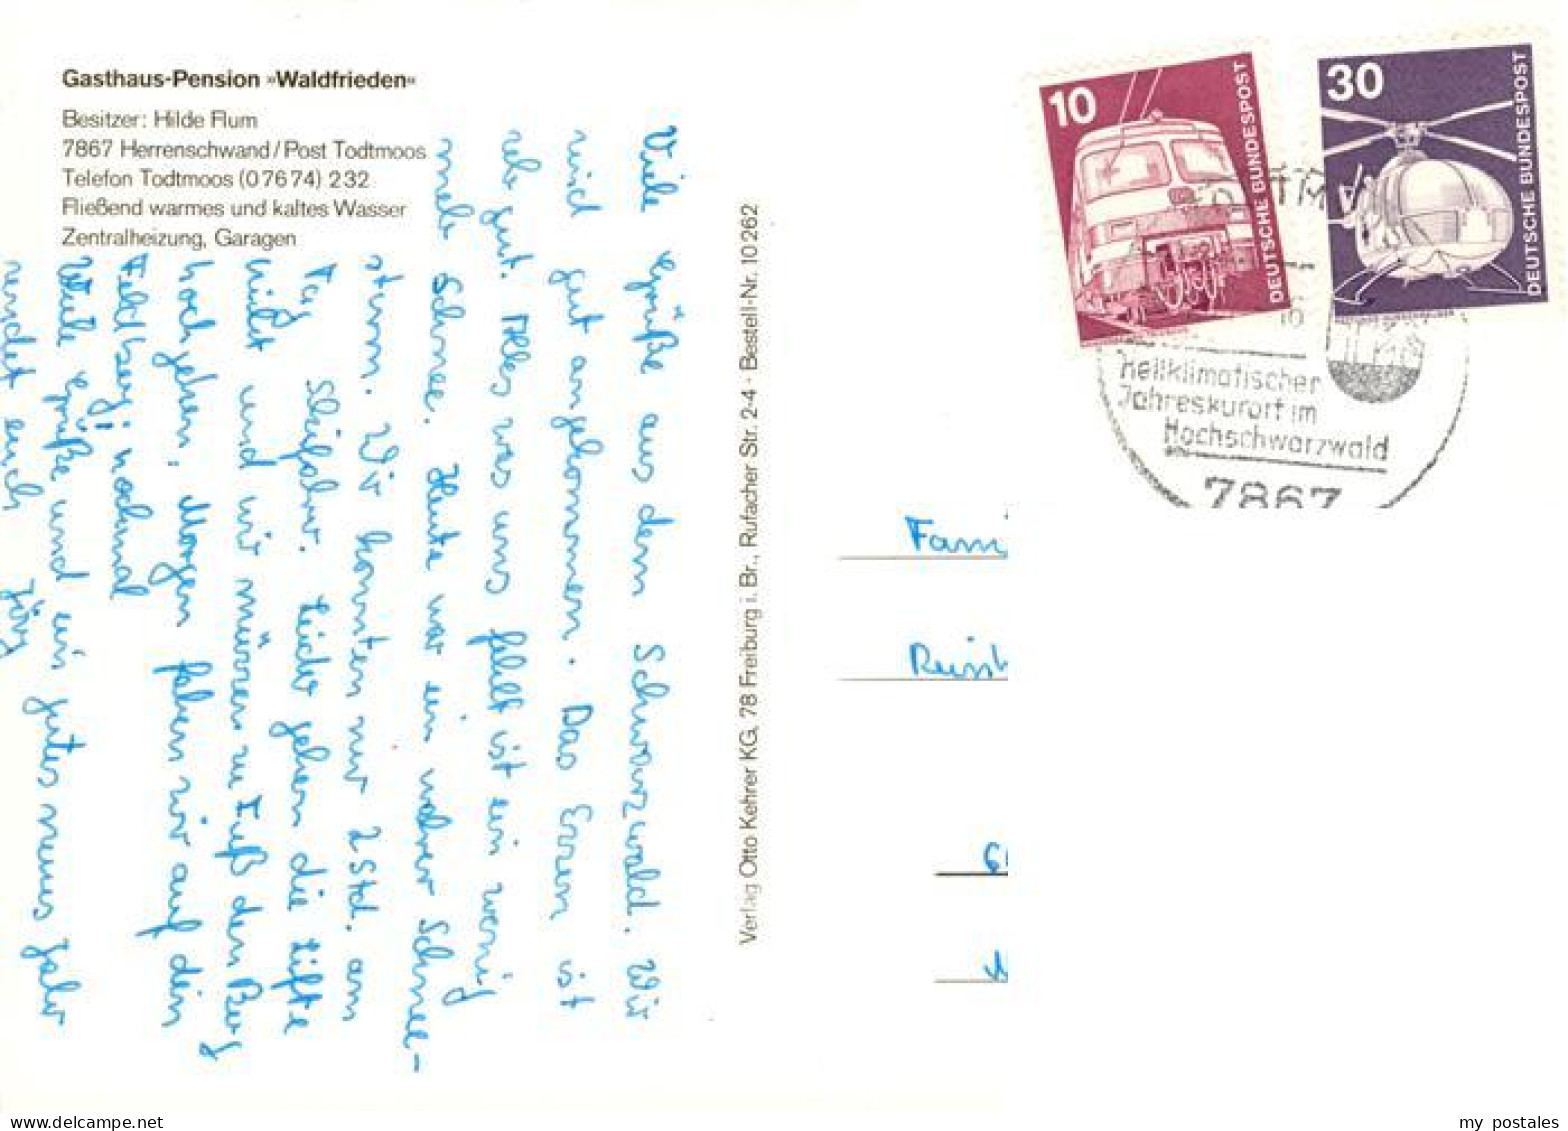 Gasthaus-Pension »Waldfrieden«
Besitzer: Hilde Flum
7867 Herrenschwand/Post Todtmoos
Telefon Todtmoos (07674) 232
Fließend warmes und kaltes Wasser
Zentralheizung, Garagen
Viele Grüße aus dem Schwarzwald. Wir
sind gut angekommen. Das Essen ist
seh gut. Alles was uns fehlt ist ein wenig
mehr Schnee. Heute war ein wahrer Schnee-
sturm. Wir konnten nur 2 Std. am
Tag Skifahr. Leider gehen die Lifte
nicht und wir müssen zu Fuß den Berg
hochgehen. Morgen fahren wir auf den
Feldberg; nochmal
Viele Grüße und ein gutes neues Jahr
sendet euch Jörg
Verlag Otto Kehrer KG, 78 Freiburg i. Br., Rufacher Str. 2-4 · Bestell-Nr. 10 262
10
DEUTSCHE BUNDESPOST
30
DEUTSCHE BUNDESPOST
Heilklimatischer
Jahreskurort im
Hochschwarzwald
7867
Fami
my postales